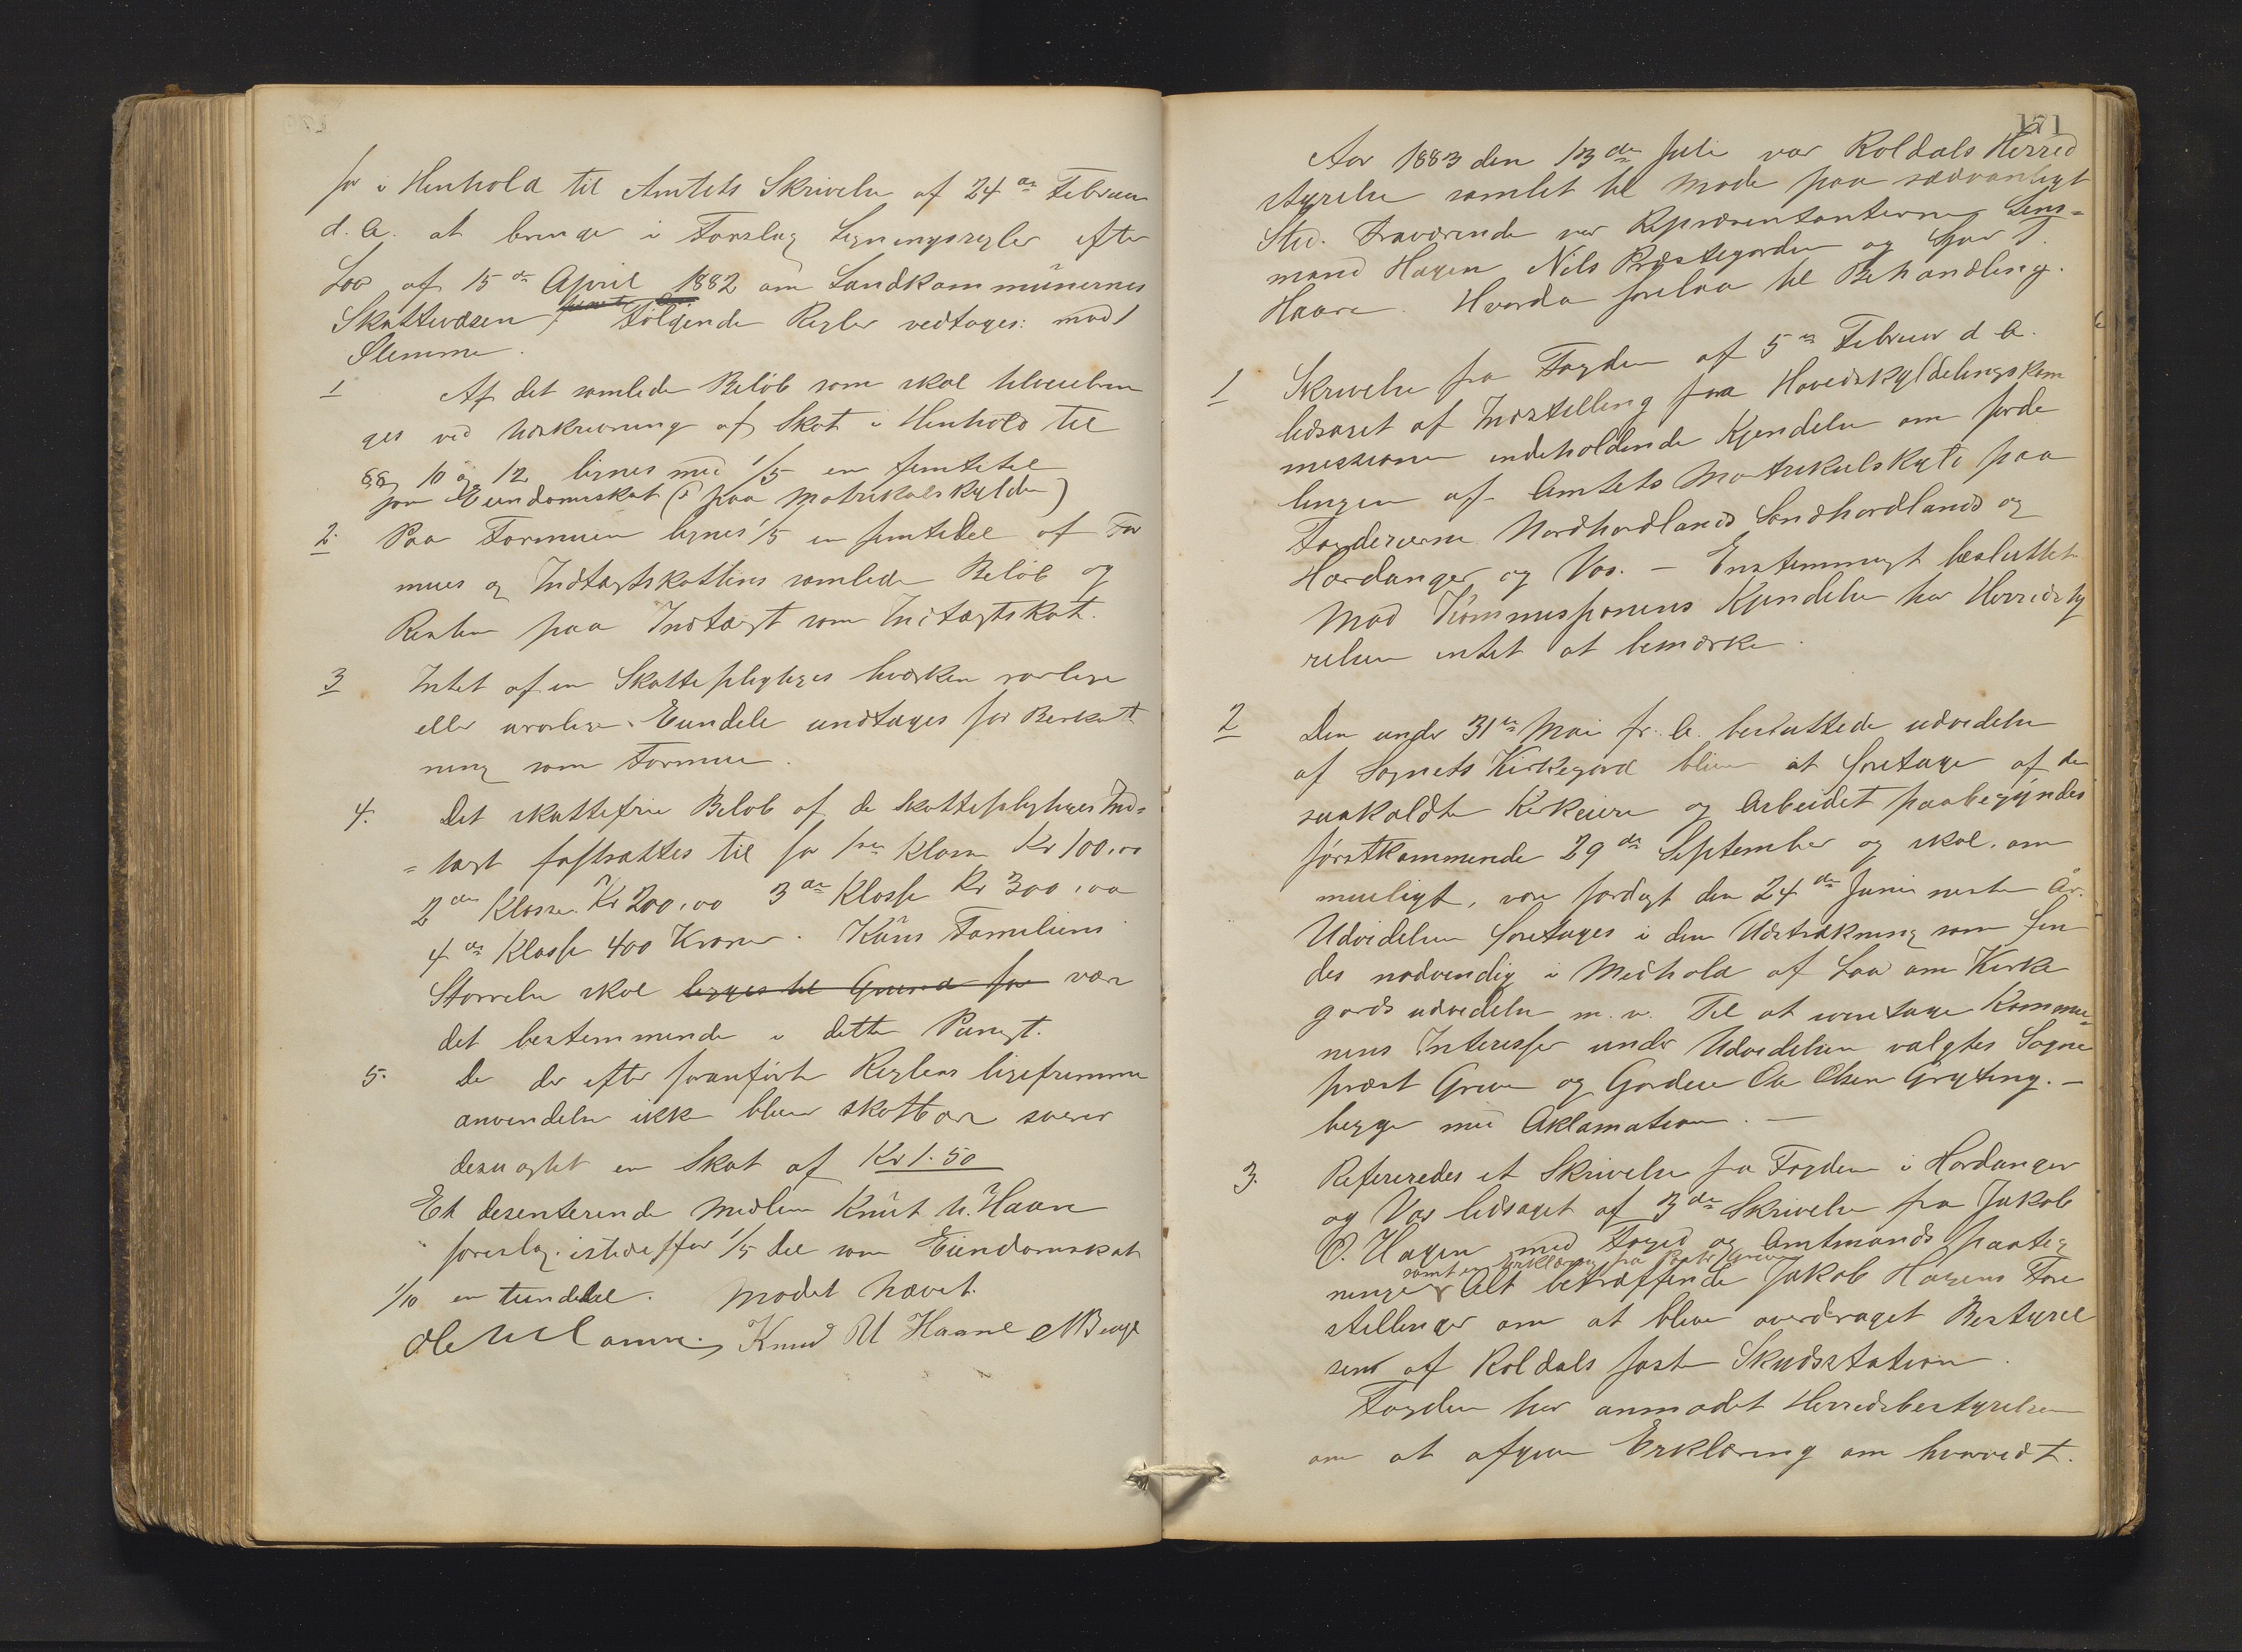 for i Henhold til Amtets Skrivelse af 24de Februar
d. A. at bringe i Forslag Ligningsregler efter
Lov af 15de April 1882 om Landkommunernes
Skattevæsen, Følgende Regler vedtoges: mod 1
Stemme.
1 Af det samlede Beløb som skal tilveiebrin
ges ved Udskrivning af Skat i Henhold til
§§ 10 og 12 lignes med 1/5 en femtedel
som Eiendomsskat (ɔ: paa Matrikulskylden)
2. Paa Formuen lignes 1/5 en femtedel af For
mues og Indtægtskattens samlede Beløb og
Resten paa Indtægt som Indtægtskat.
3 Intet af en Skattepligtiges hverken rørlige
eller urørlige Eiendele undtages for Beskat
ning som Formue.
4. Det skattefrie Beløb af de Skattepligtiges Ind=
=tægt fastsættes til for 1ste Klasse Kr 100,00
2den Klasse Kr 200,00 3de Klasse Kr 300,00
4de Klasse 400 Kroner. Kuns Familiens
Størrelse skal lægges til Grund for være
det bestemmende i dette Punkt.
5. De der efter foranførte Reglers ligefremme
anvendelse ikke bliver skatbare svarer
desuagtet en Skat af Kr 1.50
Et desenterende Medlem Knut U. Haare
foreslog istedetfor 1/5 Del som Eiendomskat
1/10 en tiendedel. Mødet hævet.
Knud U Haare
171
Aar 1883 den 13de Juli var Røldals Herred
styrelse samlet til Møde paa sædvanligt
Sted. Fraværende var Repræsentanterne Lens=
mand Hagen Nels Prestegarden og
Haare. Hvorda forelaa til Behandling.
1 Skrivelse fra Fogden af 5te Februar d A.
ledsaget af Indstilling fra Hovedskyldelingskom
missionen indeholdende Kjendelse om forde
lingen af Amtets Matrikulskyld paa
Fogderierne Nordhordlands Søndhordlands og
Hardanger og Vos. — Enstemmigt besluttet
Mod Kommissionens Kjendelse har Herredsty
relsen intet at bemærke.
2 Den under 31te Mai fr. A. besluttede udvidelse
af Sognets Kirkegård bliver at foretage af de
saakaldte Kirkeiere og Arbeidet paabegyndes
førstkommende 29de September og skal, om
mueligt, være færdigt den 24de Juni neste År.
Udvidelsen foretages i den Udstrækning som fin
des nødvendig i Medhold af Lov om Kirke
gårds udvidelse m. v. Til at varetage Kommu=
nens Interesser under Udvidelsen valgtes Sogne
præst Greve og Gardeier Ole Olsen Gryting. —
begge med Aklamation. —
3. Refereredes et Skrivelse fra Fogden i Hardanger
og Vos ledsaget af 3de Skrivelse fra Jakob
P. Hagen med Foged og Amtmands paateg
samt en Erklæring fra
ninger Alt betræffende Jakob Hagens Fore
stillinger om at blive overdraget Bestyrel
sen af Røldals faste Skudsstation.
Fogden har anmodet Herredsbestyrelsen
om at afgive Erklæring om hvorvidt.